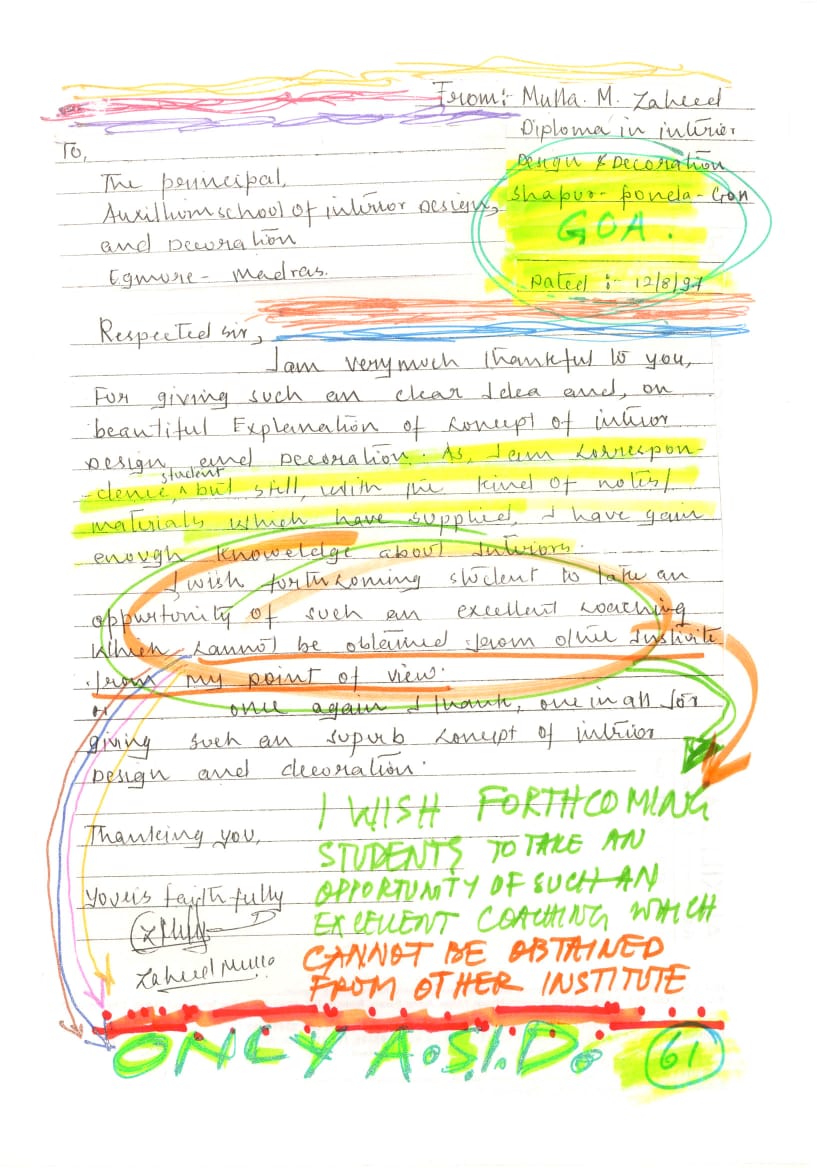 From:- Mulla. M. Zaheed
Diploma in interior
Design & Decoration
Shapur- ponda- Goa
GOA.
Dated :- 12/8/97
To,
The principal,
Auxilium school of interior Design,
and Decoration
Egmore- Madras.
Respected sir,
I am verymuch thankful to you,
For giving such an clear Idea and, on
beautiful Explanation of concept of interior
Design and Decoration. As, I am correspon-
-dence, student but still, with the kind of notes/
materials which have supplied, I have gain
enough knoweldge about Interiors.
I wish forthcoming student to take an
oppurtunity of such an excellent coaching
which cannot be obtained from other Institute
from my point of view.
once again I thank, one in all for
giving such an superb concept of interior
Design and decoration.
Thanking you,
Yours faithfully
Zaheed Mulla
I WISH FORTHCOMING
STUDENTS TO TAKE AN
OPPORTUNITY OF SUCH AN
EXCELLENT COACHING WHICH
CANNOT BE OBTAINED
FROM OTHER INSTITUTE
ONLY A.S.I.D.
61